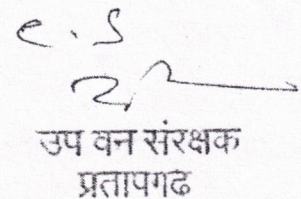 C.S
उप वन संरक्षक
प्रतापगढ